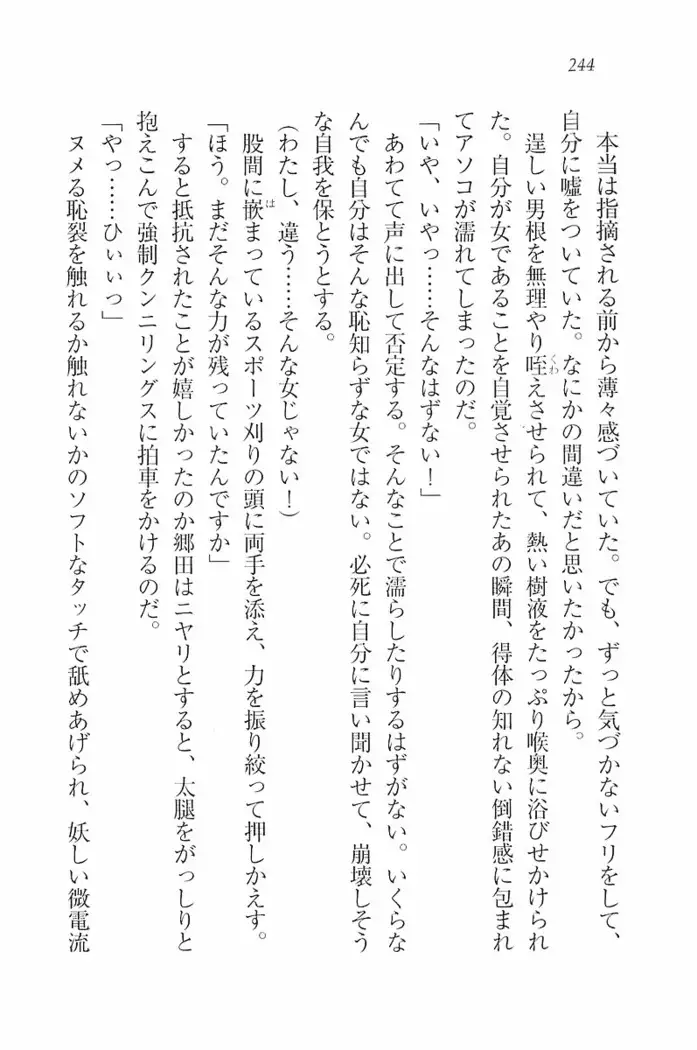 244
本当は指摘される前から薄々感づいていた。でも、ずっと気づかないフリをして、
自分に嘘をついていた。なにかの間違いだと思いたかったから。
逞しい男根を無理やり咥えさせられて、熱い樹液をたっぷり喉奥に浴びせかけられ
た。自分が女であることを自覚させられたあの瞬間、得体の知れない倒錯感に包まれ
てアソコが濡れてしまったのだ。
「いや、いやっ……そんなはずない！」
あわてて声に出して否定する。そんなことで濡らしたりするはずがない。いくらな
んでも自分はそんな恥知らずな女ではない。必死に自分に言い聞かせて、崩壊しそう
な自我を保とうとする。
（わたし、違う……そんな女じゃない！）
股間に嵌まっているスポーツ刈りの頭に両手を添え、力を振り絞って押しかえす。
「ほう。まだそんな力が残っていたんですか」
すると抵抗されたことが嬉しかったのか郷田はニヤリとすると、太腿をがっしりと
抱えこんで強制クンニリングスに拍車をかけるのだ。
「やっ……ひぃぃっ」
ヌメる恥裂を触れるか触れないかのソフトなタッチで舐めあげられ、妖しい微電流